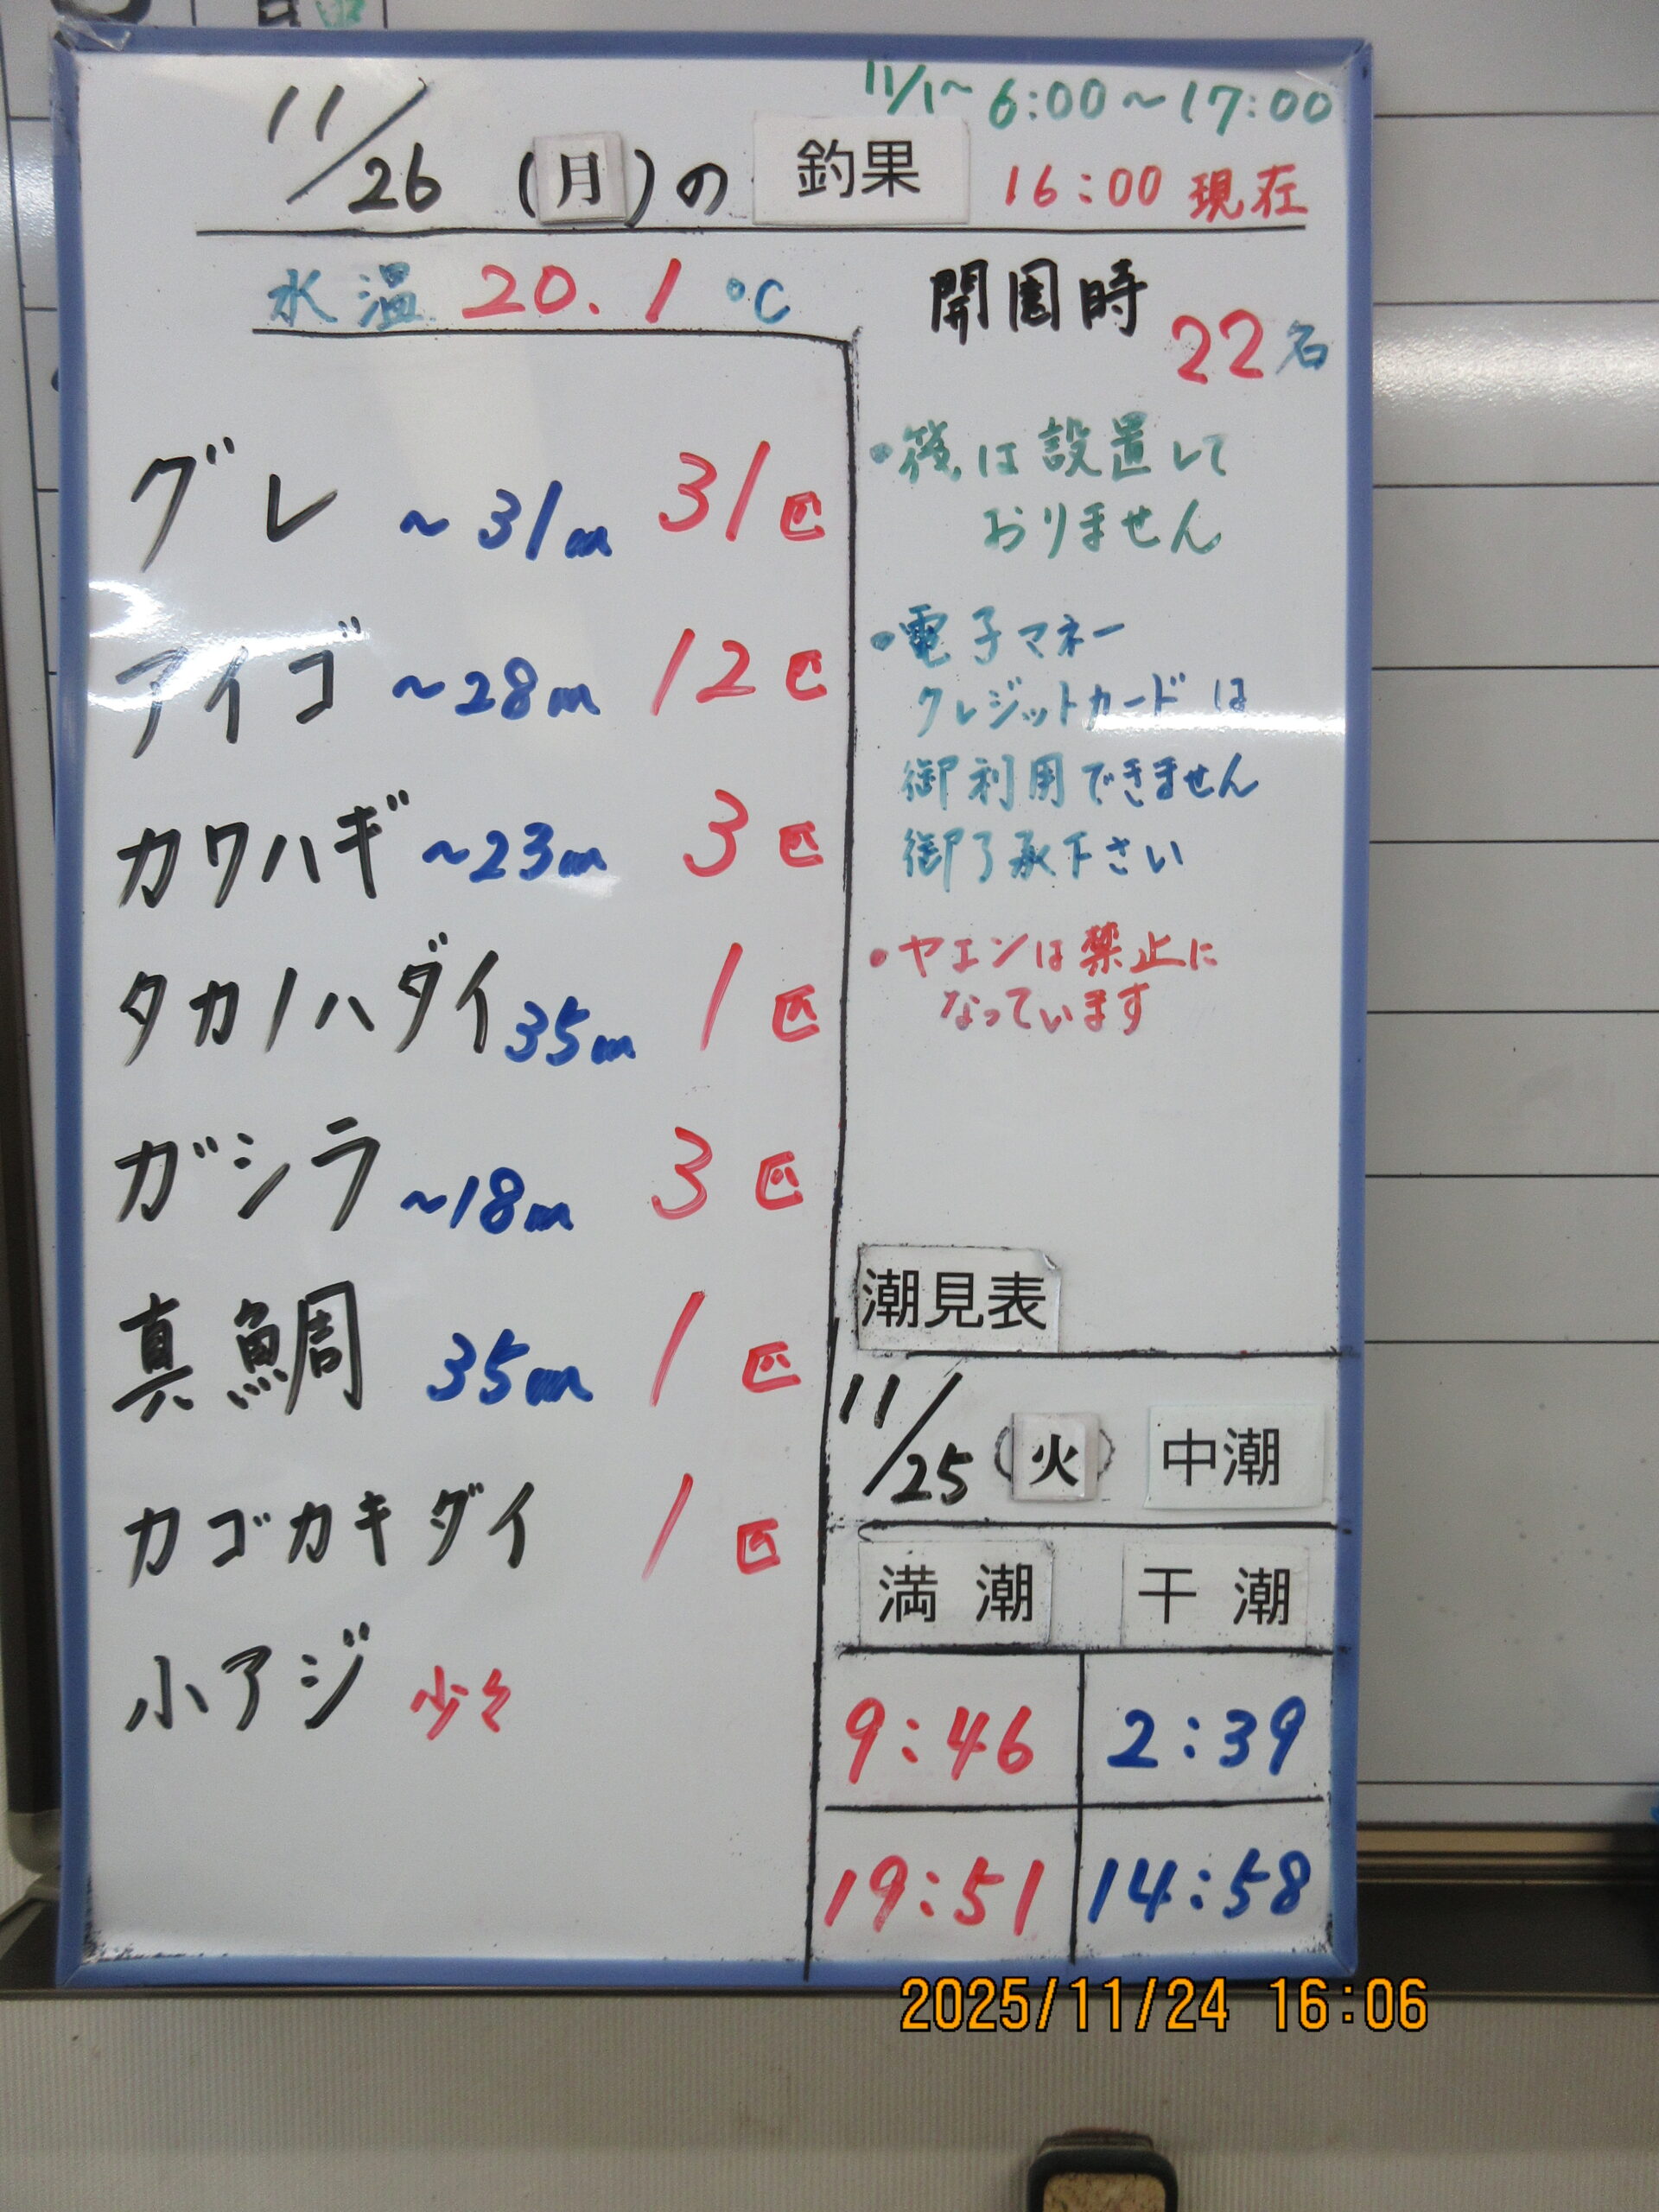 11/1~ 6:00~17:00
11/26 (月)の 釣果 16:00 現在
水温 20.1 ℃
開園時 22名
グレ ~31cm 31匹
アイゴ ~28cm 12匹
カワハギ ~23cm 3匹
タカノハダイ 35cm 1匹
ガシラ ~18cm 3匹
真鯛 35cm 1匹
カゴカキダイ 1匹
小アジ 少々
・筏は設置して
おりません
・電子マネー
クレジットカードは
御利用できません
御了承下さい
・ヤエンは禁止に
なっています
潮見表
11/25 (火) 中潮
満潮 干潮
9:46 2:39
19:51 14:58
2025/11/24 16:06